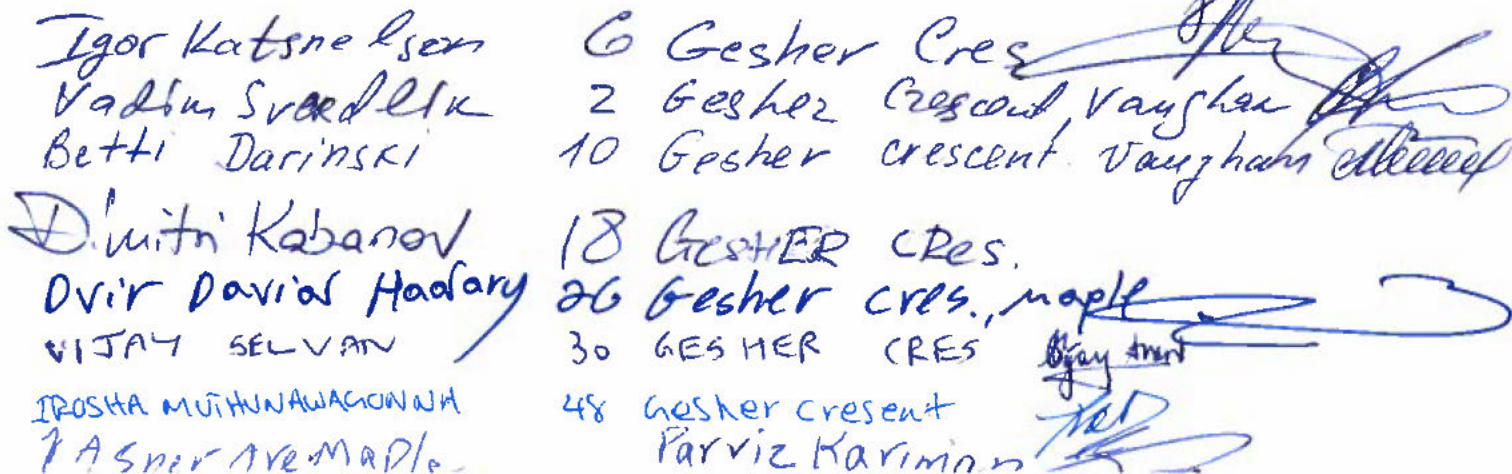 Igor Katsnelson 6 Gesher Cres
Vadim Sverdlik 2 Gesher Crescent, Vaughan
Betti Darinski 10 Gesher crescent Vaughan
Dimitri Kabanov 18 GesHER CRes.
Dvir David Hadary 26 Gesher cres., maple
VIJAY SELVAN 30 GESHER CRES
IROSHA 48 Gesher Cresent
Ave Maple Parviz Kariman